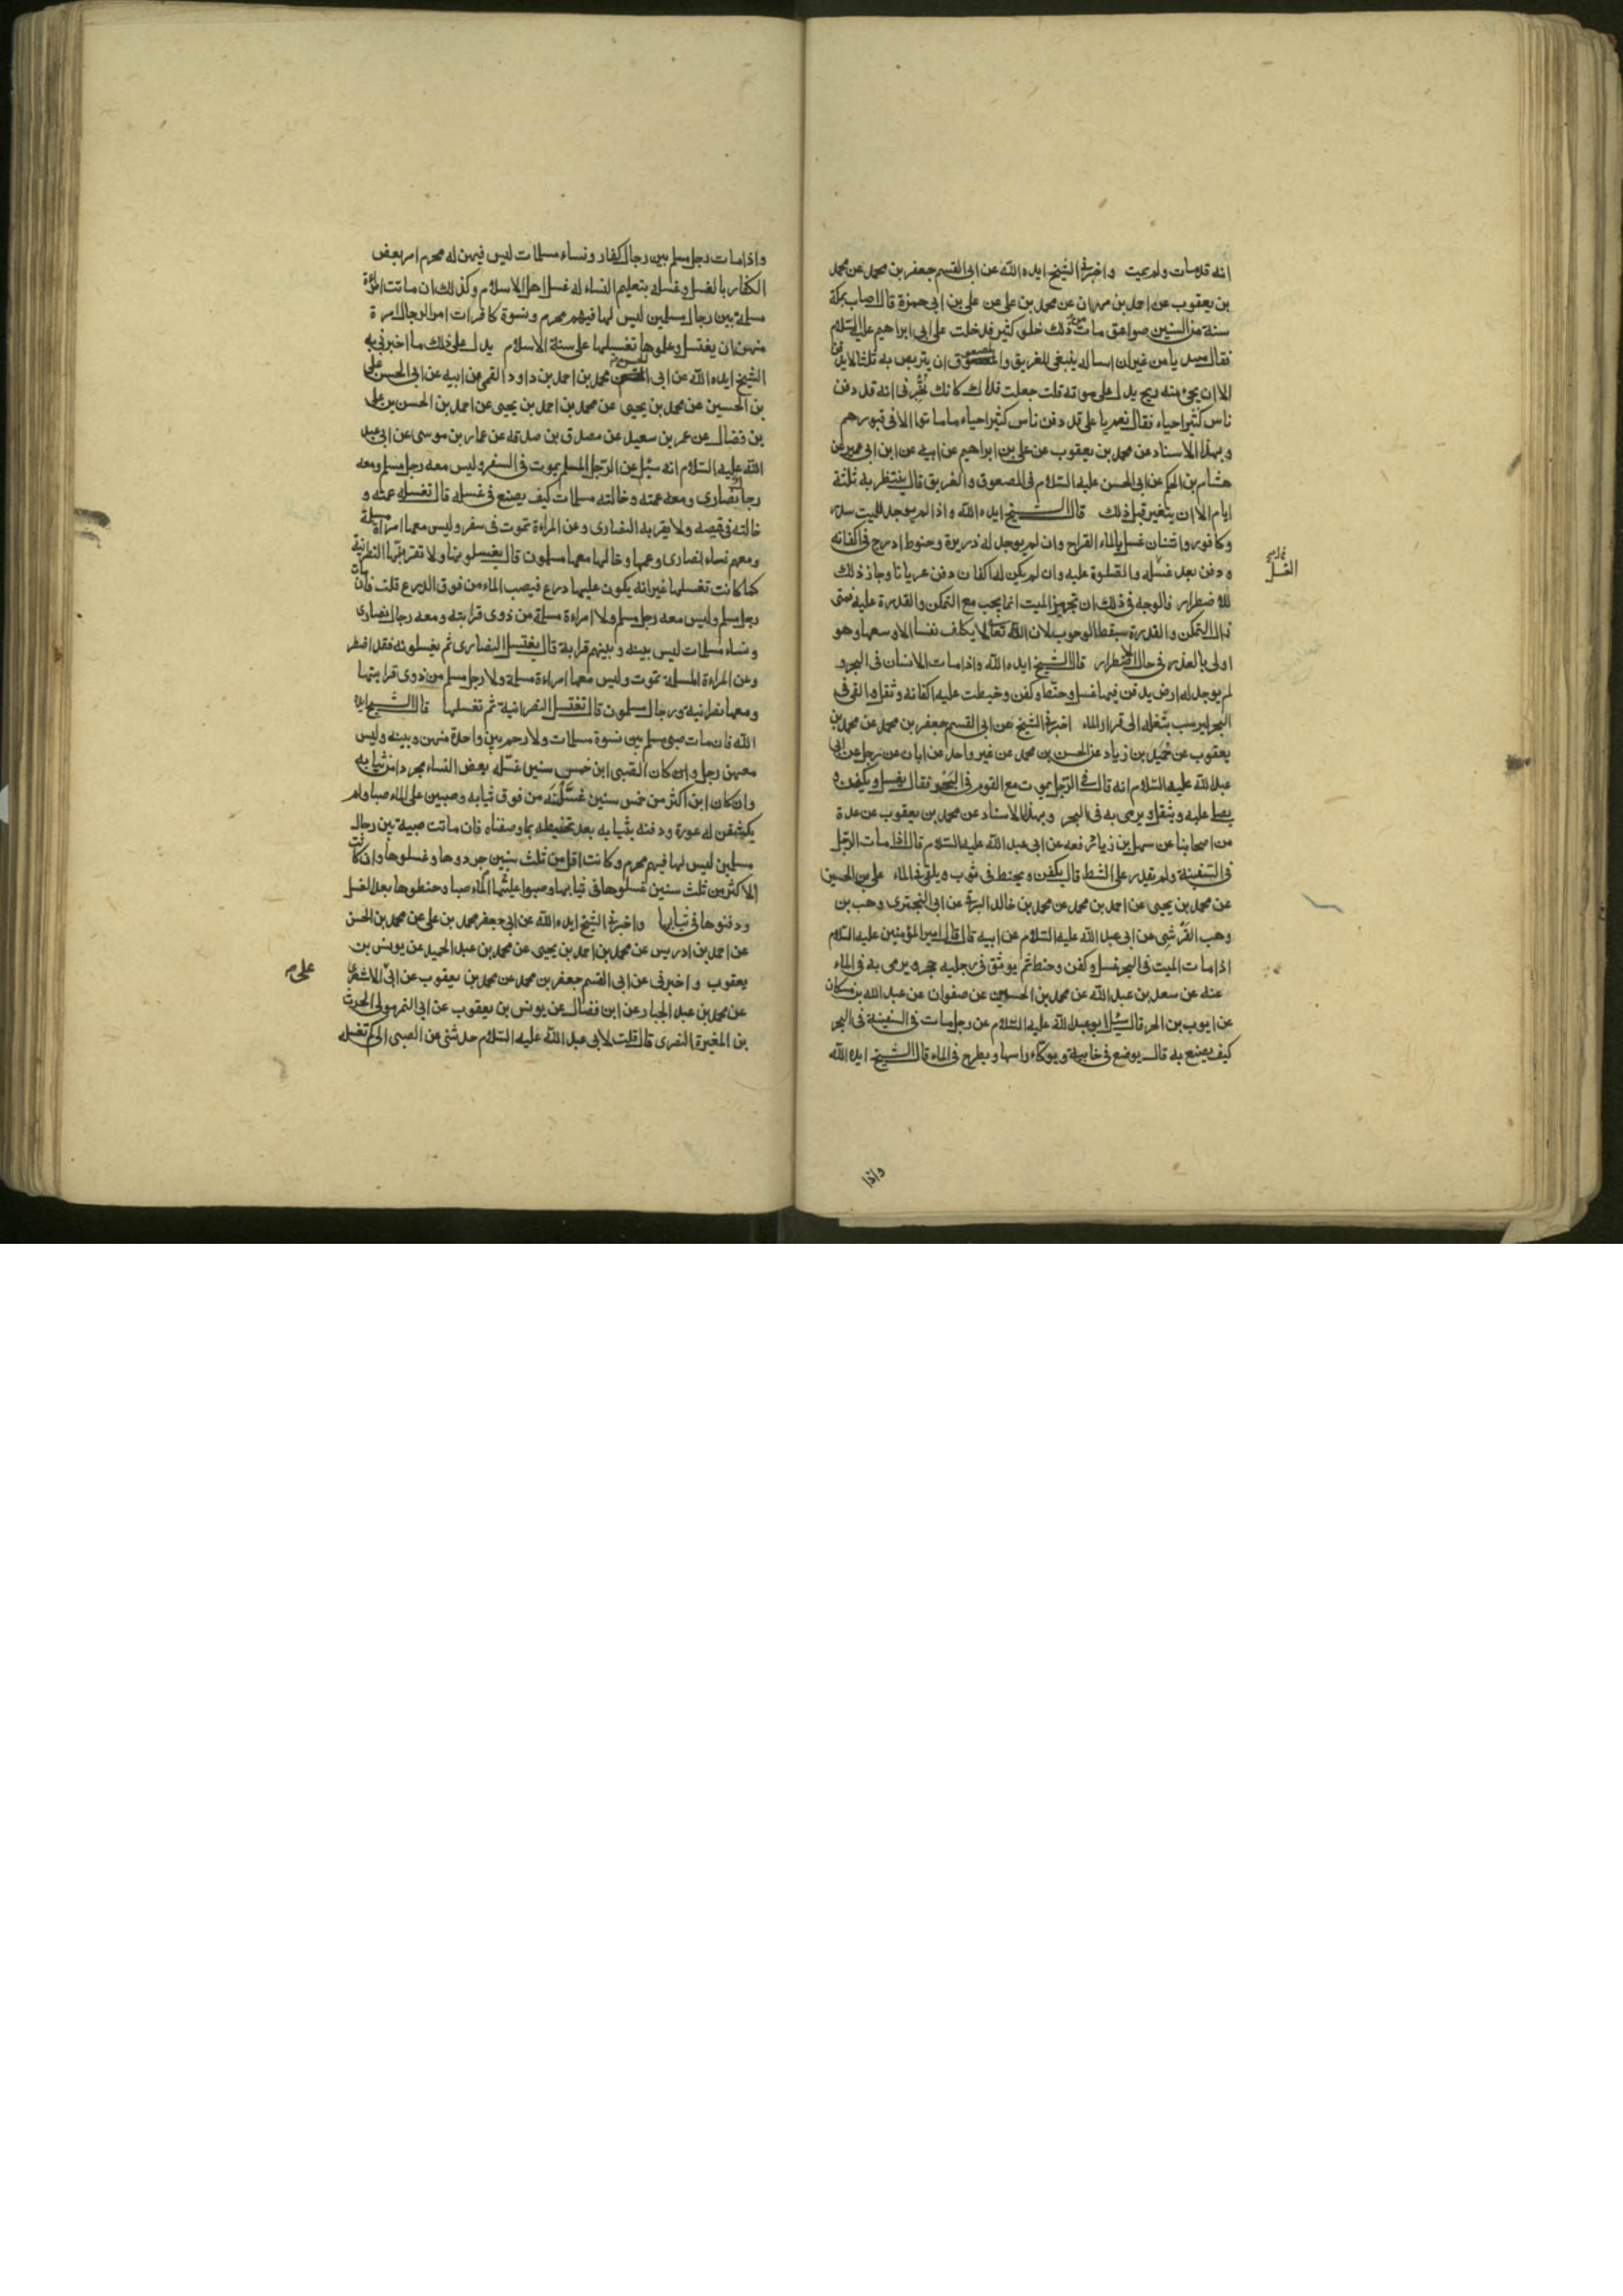 انه قد مات ولم يمت واخبرني الشيخ ايده الله عن ابى القسم جعفر بن محمد عن محمد
بن يعقوب عن احمد بن مهران عن محمد بن على عن على بن ابى حمزة قال اصاب بمكة
سنة من السنين صواعق مات من ذلك خلق كثير فدخلت على ابى ابراهيم عليه السلام
فقال مبتديا من غير ان اساله ينبغى للغريق والمصعوق ان يتربص به ثلثا لا يدفن
الا ان يجئ منه ريح يدل على موته قلت جعلت فداك كانك تخبرنى انه قد دفن
ناس كثير احياء فقال نعم يا على قد دفن ناس كثير احياء ما ماتوا الا فى قبورهم
وبهذا الاسناد عن محمد بن يعقوب عن على بن ابراهيم عن ابيه عن ابن ابى عمير عن
هشام بن الحكم عن ابى الحسن عليه السلام فى المصعوق والغريق قال ينتظر به ثلثة
ايام الا ان يتغير قبل ذلك قال الشيخ ايده الله واذا لم يوجد للميت سدر
وكافور واشنان غسل بالماء القراح وان لم يوجد له ذريرة وحنوط ادرج فى اكفانه
ودفن بعد غسله والصلوة عليه وان لم يكن له اكفان دفن عريانا وجاز ذلك
للاضطرار فالوجه فى ذلك ان تجهيز الميت انما يجب مع التمكن والقدرة عليه فمتى
زال التمكن والقدرة سقط الوجوب لان الله تعالى لا يكلف نفسا الا وسعها وهو
اولى بالعذر فى حال الاضطرار قال الشيخ ايده الله واذا مات الانسان فى البحر و
لم يوجد له ارض يدفن فيها غسل وحنط وكفن وخيطت عليه اكفانه وثقل والقى فى
البحر ليرسب بثقله الى قرار الماء اخبرنى الشيخ عن ابى القسم جعفر بن محمد عن محمد بن
يعقوب عن حميد بن زياد عن الحسن بن محمد عن غير واحد عن ابان عن رجل عن ابى
عبد الله عليه السلام انه قال فى الرجل يموت مع القوم فى البحر فقال يغسل ويكفن و
يصلى عليه ويثقل ويرمى به فى البحر وبهذا الاسناد عن محمد بن يعقوب عن عدة
من اصحابنا عن سهل بن زياد رفعه عن ابى عبد الله عليه السلام قال اذا مات الرجل
فى السفينة ولم يقدر على الشط قال يكفن ويحنط فى ثوب ويلقى فى الماء على بن الحسين
عن محمد بن يحيى عن احمد بن محمد عن محمد بن خالد البرقى عن ابى البخترى وهب بن
وهب القرشى عن ابى عبد الله عليه السلام عن ابيه قال قال امير المؤمنين عليه السلام
اذا مات الميت فى البحر غسل وكفن وحنط ثم يوثق فى رجليه حجر ويرمى به فى الماء
عنه عن سعد بن عبد الله عن محمد بن الحسين عن صفوان عن عبد الله بن مسكان
عن ايوب بن الحر قال سئل ابو عبد الله عليه السلام عن رجل مات فى السفينة فى البحر
كيف يصنع به قال يوضع فى خابية ويوكاء راسها ويطرح فى الماء قال الشيخ ايده الله
واذا
الغسل
واذا مات رجل مسلم بين رجال كفار ونساء مسلمات ليس فيهن له محرم امر بعض
الكفار بالغسل وغسله بتعليم النساء له غسل اهل الاسلام وكذلك ان ماتت امراة
مسلمة بين رجال مسلمين ليس لها فيهم محرم ونسوة كافرات امر الرجال امرة
منهن ان يغتسل وعلموها تغسيلها على سنة الاسلام يدل على ذلك ما اخبرنى به
الشيخ ايده الله عن ابى الحسن محمد بن احمد بن داود القمى عن ابيه عن ابى الحسن على
بن الحسين عن محمد بن يحيى عن محمد بن احمد بن يحيى عن احمد بن الحسن بن على
بن فضال عن عمر بن سعيد عن مصدق بن صدقه عن عمار بن موسى عن ابى عبد
الله عليه السلام انه سئل عن الرجل المسلم يموت فى السفر وليس معه رجل مسلم ومعه
رجال نصارى ومعه عمته وخالته مسلمات كيف يصنع فى غسله قال تغسله عمته و
خالته فى قميصه ولا يقربه النصارى وعن المراءة تموت فى سفر وليس معها امراة مسلمة
ومعهم نساء نصارى وعمها وخالها معها مسلمون قال يغسلونها ولا تقربنها النصرانية
كما كانت تغسلها غير انه يكون عليها درع فيصب الماء من فوق الدرع قلت فان مات
رجل مسلم وليس معه رجل مسلم ولا امراءة مسلمة من ذوى قرابته ومعه رجال نصارى
ونساء مسلمات ليس بينه وبينهم قرابة قال يغتسل النصارى ثم يغسلونه فقد اضطر
وعن المراءة المسلمة تموت وليس معها امراءة مسلمة ولا رجل مسلم من ذوى قرابتها
ومعها نصرانية ورجال مسلمون قال تغتسل النصرانية ثم تغسلها قال الشيخ ايده
الله فان مات صبى مسلم بين نسوة مسلمات ولا رحم بين واحدة منهن وبينه وليس
معهن رجل وان كان الصبى ابن خمس سنين غسله بعض النساء مجردا من ثيابه
وان كان ابن اكثر من خمس سنين غسلنه من فوق ثيابه وصبين على الماء صبا ولم
يكشفن له عورة ودفنه بثيابه بعد تحنيطه بما وصفناه فان ماتت صبية بين رجال
مسلمين ليس لها فيهم محرم وكانت اقل من ثلث سنين جردوها وغسلوها وان كانت
لاكثر من ثلث سنين غسلوها فى ثيابها وصبوا عليها الماء صبا وحنطوها بعد الغسل
ودفنوها فى ثيابها واخبرنى الشيخ ايده الله عن ابى جعفر محمد بن على عن محمد بن الحسن
عن احمد بن ادريس عن محمد بن احمد بن يحيى عن محمد بن عبد الحميد عن يونس بن
يعقوب واخبرنى عن ابى القسم جعفر بن محمد عن محمد بن يعقوب عن ابى على الاشعرى
عن محمد بن عبد الجبار عن ابن فضال عن يونس بن يعقوب عن ابى النمر مولى الحرث
بن المغيرة النصرى قال قلت لابى عبد الله عليه السلام حدثنى عن الصبى الى كم تغسله
على م